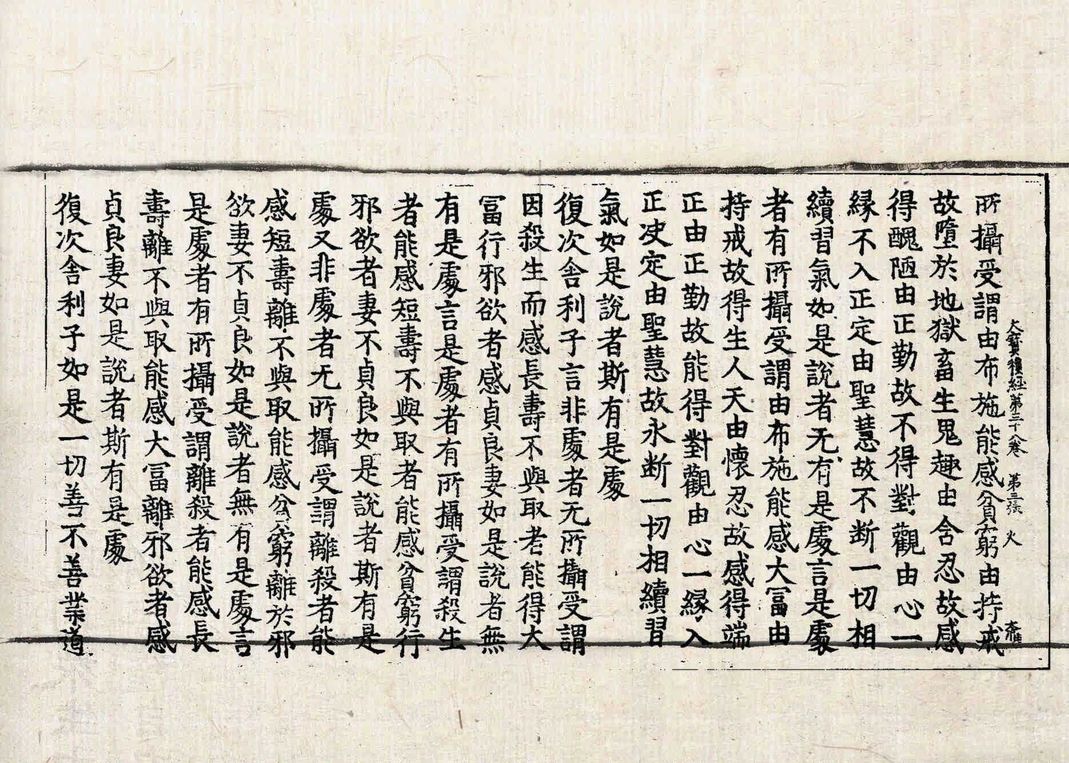 大寶積経第三十八卷 第三張 火
所攝受謂由布施能感貧窮由持戒
故墮於地獄畜生鬼趣由舍忍故感
得醜陋由正勤故不得對觀由心一
縁不入正定由聖慧故不断一切相
續習氣如是說者无有是處言是處
者有所攝受謂由布施能感大冨由
持戒故得生人天由懷忍故感得端
正由正勤故能得對觀由心一縁入
正决定由聖慧故永断一切相續習
氣如是說者斯有是處
復次舍利子言非處者无所攝受謂
因殺生而感長壽不與取者能得大
冨行邪欲者感貞良妻如是說者無
有是處言是處者有所攝受謂殺生
者能感短壽不與取者能感貧窮行
邪欲者妻不貞良如是說者斯有是
處又非處者无所攝受謂離殺者能
感短壽離不與取能感貧窮離於邪
欲妻不貞良如是說者無有是處言
是處者有所攝受謂離殺者能感長
壽離不與取能感大冨離邪欲者感
貞良妻如是說者斯有是處
復次舍利子如是一切善不善業道